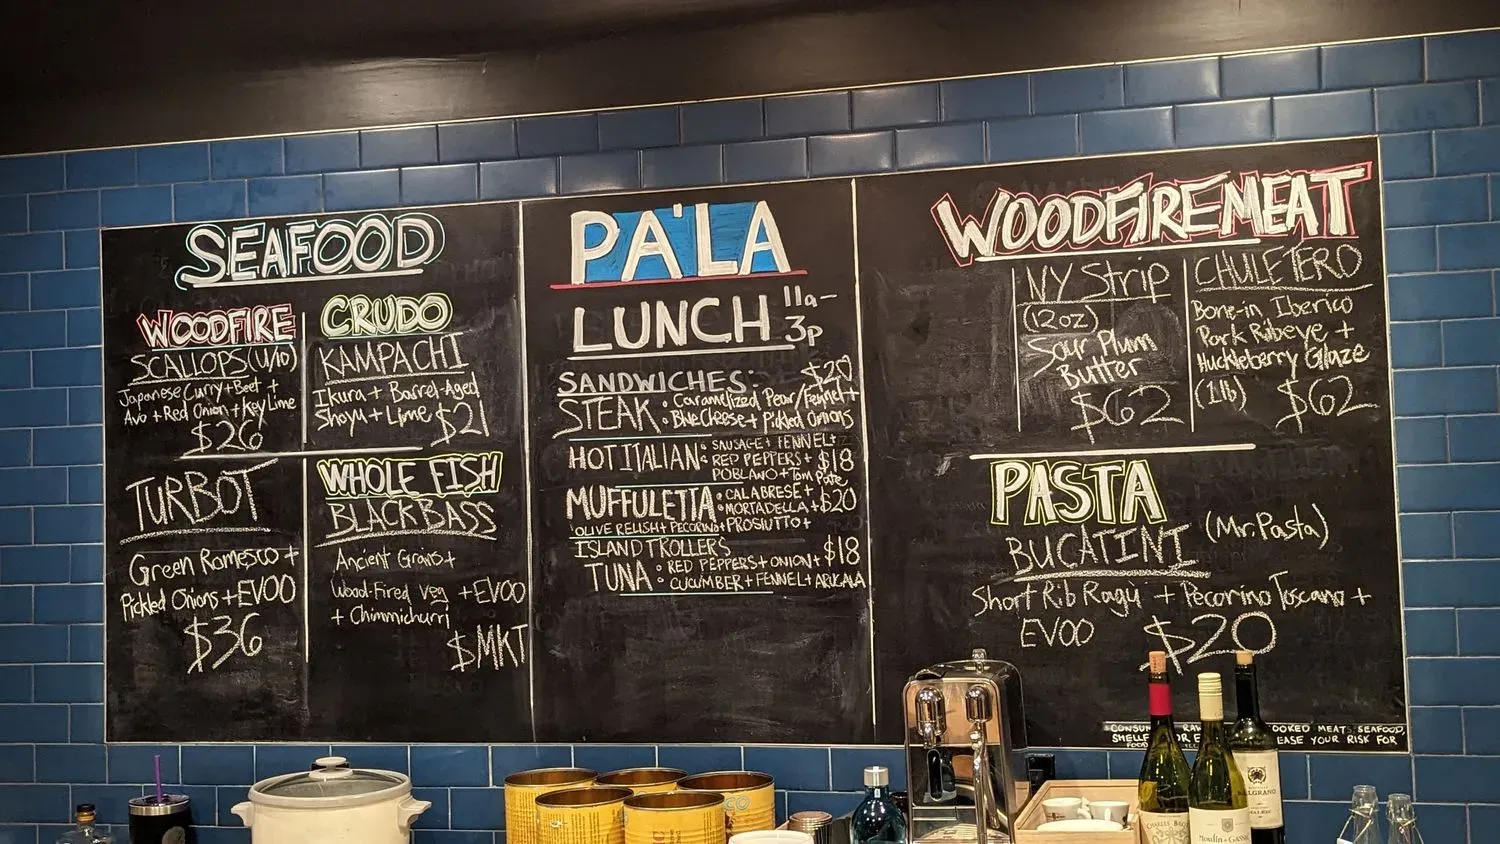 SEAFOOD
WOODFIRE
SCALLOPS (U/10)
Japanese Curry + Beet +
Avo + Red Onion + Key Lime
$26
CRUDO
KAMPACHI
Ikura + Barrel-Aged
Shoyu + Lime $21
TURBOT
Green Romesco +
Pickled Onions + EVOO
$36
WHOLE FISH
BLACK BASS
Ancient Grains +
Wood-Fired Veg + EVOO
+ Chimmichurri
$MKT
PA'LA
LUNCH 11a-
3p
SANDWICHES: $20
STEAK • Caramelized Pear/Fennel +
• Blue Cheese + Pickled Onions
HOT ITALIAN • SAUSAGE + FENNEL +
• RED PEPPERS + $18
POBLANO + Tom Pate
MUFFULETTA • CALABRESE +
• MORTADELLA + $20
OLIVE RELISH + PECORINO + PROSIUTTO +
ISLAND TROLLERS
TUNA • RED PEPPERS + ONION + $18
• CUCUMBER + FENNEL + ARUGALA
WOODFIRE MEAT
NY Strip
(12oz)
Sour Plum
Butter
$62
CHULETERO
Bone-in Iberico
Pork Ribeye +
Huckleberry Glaze
(1lb) $62
PASTA
BUCATINI (Mr. Pasta)
Short Rib Ragu + Pecorino Toscano +
EVOO $20
MEAT SEAFOOD,
YOUR RISK FOR